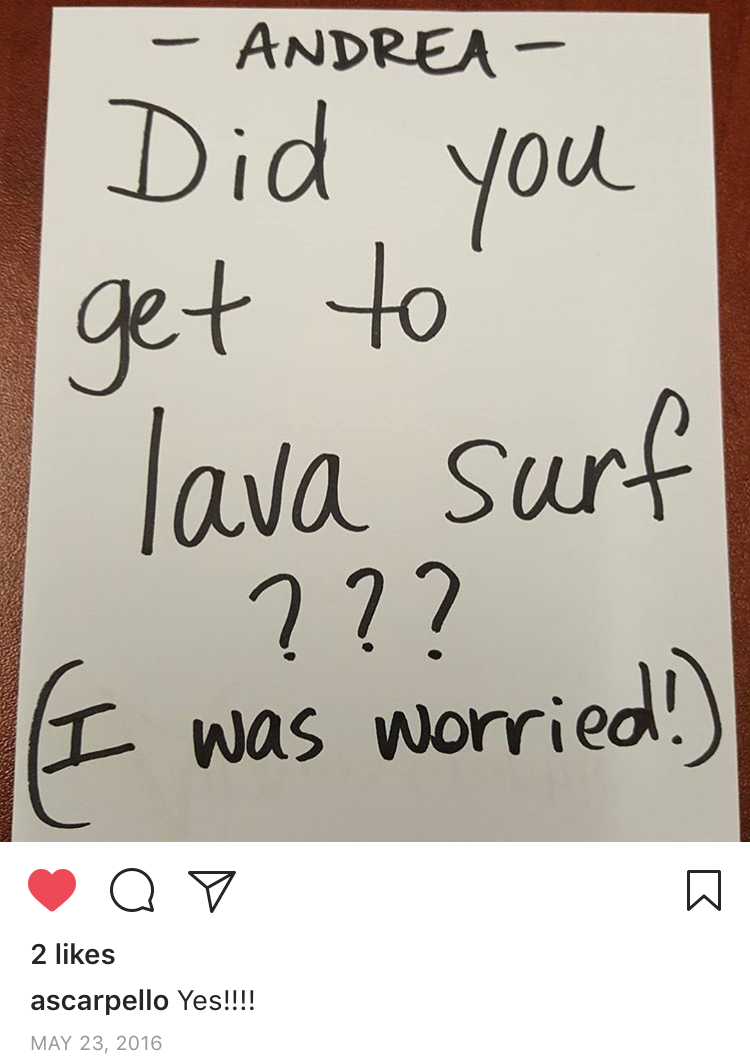 - ANDREA -
Did you
get to
lava surf
???
(I was worried!)
2 likes
ascarpello Yes!!!!
MAY 23, 2016